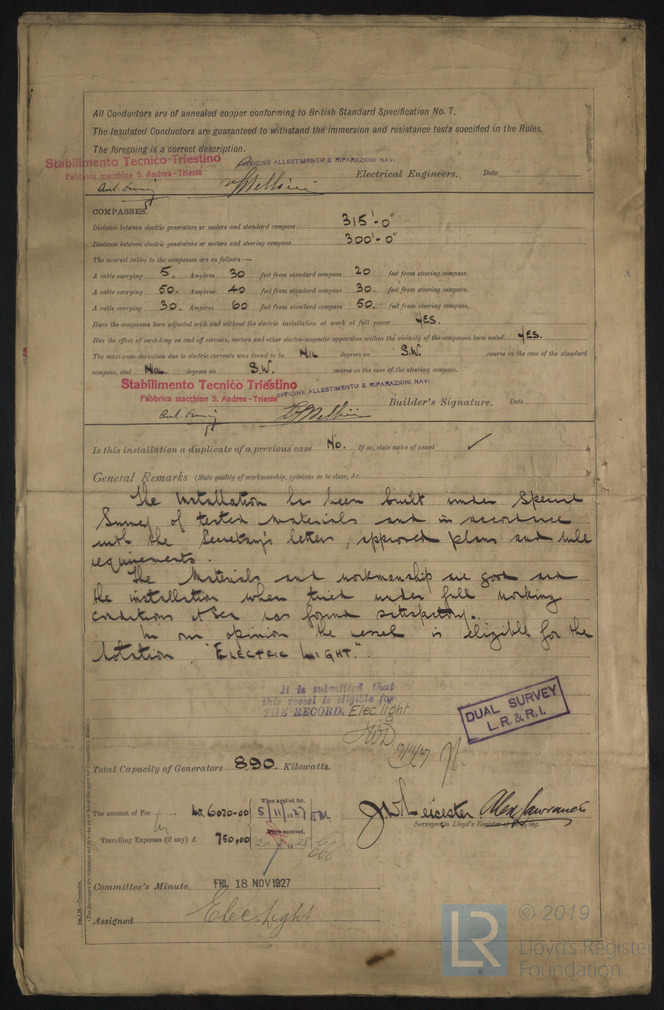 All Conductors are of annealed copper conforming to British Standard Specification No. 7.
The Insulated Conductors are guaranteed to withstand the immersion and resistance tests specified in the Rules.
The foregoing is a correct description.
Stabilimento Tecnico Triestino
Fabbrica macchine S. Andrea - Trieste
OFFICINE ALLESTIMENTO E RIPARAZIONI NAVI
Electrical Engineers. Date
COMPASSES.
Distance between electric generators or motors and standard compass 315'-0"
Distance between electric generators or motors and steering compass 300'-0"
The nearest cables to the compasses are as follows:—
A cable carrying 5. Ampères 30 feet from standard compass 20 feet from steering compass.
A cable carrying 50. Ampères 40 feet from standard compass 30. feet from steering compass.
A cable carrying 30. Ampères 60 feet from standard compass 50. feet from steering compass.
Have the compasses been adjusted with and without the electric installation at work at full power YES.
Has the effect of switching on and off circuits, motors and other electro-magnetic apparatus within the vicinity of the compasses been noted YES.
The maximum deviation due to electric currents was found to be Nil degrees on S.W. course in the case of the standard
compass, and Nil degrees on S.W. course in the case of the steering compass.
Stabilimento Tecnico Triestino
Fabbrica macchine S. Andrea - Trieste
OFFICINE ALLESTIMENTO E RIPARAZIONI NAVI
Builder's Signature. Date
Is this installation a duplicate of a previous case No. If so, state name of vessel ✓
General Remarks (State quality of workmanship, opinions as to class, &c.
The Installation has been built under Special
Survey of tested materials and in accordance
with the Secretary's letters, approved plans and rule
requirements.
The Materials and workmanship are good and
the installation when tried under full working
conditions at Sea was found satisfactory.
In our opinion the vessel is eligible for the
notation "ELECTRIC LIGHT."
It is submitted that
this vessel is eligible for
THE RECORD. Elec light
DUAL SURVEY
L.R. & R.I.
Total Capacity of Generators 890 Kilowatts.
The amount of Fee 6020=00 When applied for, 5/11/1927
Travelling Expenses (if any) £ 750,00 When received,
J W Leicester Alex Lawrance
Surveyor to Lloyd's Register of Shipping.
Committee's Minute FRI. 18 NOV 1927
Assigned Elec Light
© 2019
LR Lloyd's Register
Foundation